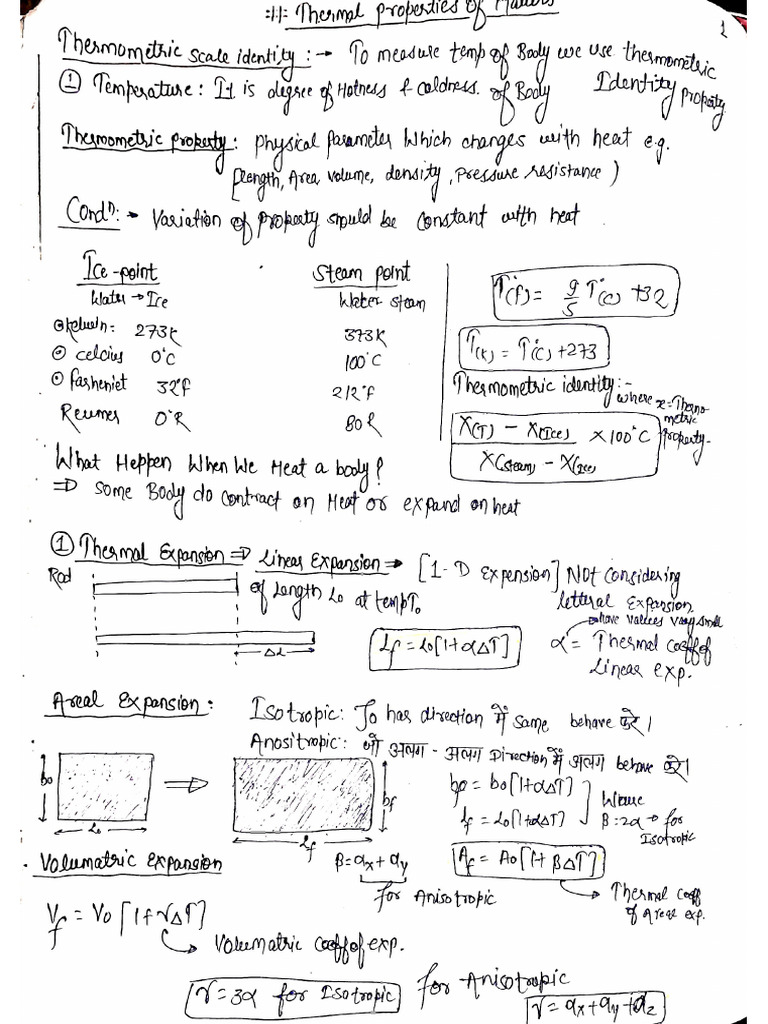 :11: Thermal properties of Matters
1
Thermometric scale identity :→ To measure temp of Body we use thermometric
Identity property
① Temperature : It is degree of Hotness & Coldness. of Body
Thermometric property : physical parameter Which changes with heat e.g.
[length, Area, volume, density, pressure resistance)
Condⁿ: → Variation of property should be constant with heat
Ice-point
Water → Ice
Steam point
Water steam
⊙ Kelwin: 273K 373K
⊙ celcius 0°C 100°C
⊙ farheniet 32°F 212°F
Reumer 0°R 80R
T(f) = 9/5 T(c) +32
T(k) = T(c) +273
Thermometric identity:-
where x = Thermo-
metric
property-
X(T) - X(Ice) / X(steam) - X(Ice) ×100°C
What Heppen When We Heat a body?
⇒ Some Body do contract on Heat or expand on heat
① Thermal Expansion ⇒ Linear Expansion → [1-D Expension] Not Considering
letteral Expansion
have values very small
Rod
of Length L₀ at temp T₀
ΔL
Lf = L₀[1+αΔT]
α = Thermal coeff of
Linear exp.
Areal Expansion: Isotropic: Jo has direction में same behave करे।
Anositropic: जो अलग - अलग Direction में अलग behave करे।
b₀
L₀
bf
Lf
bf = b₀[1+αΔT]
Lf = L₀[1+αΔT]
Where
β = 2α → for
Isotropic
β = αx + αy
for Anisotropic
Af = A₀[1+βΔT]
Thermal coeff
of Areal exp.
Volumatric Expansion
Vf = V₀[1+γΔT]
Volumatric coeff of exp.
γ = 3α for Isotropic
for Anisotropic
γ = αx + αy + αz